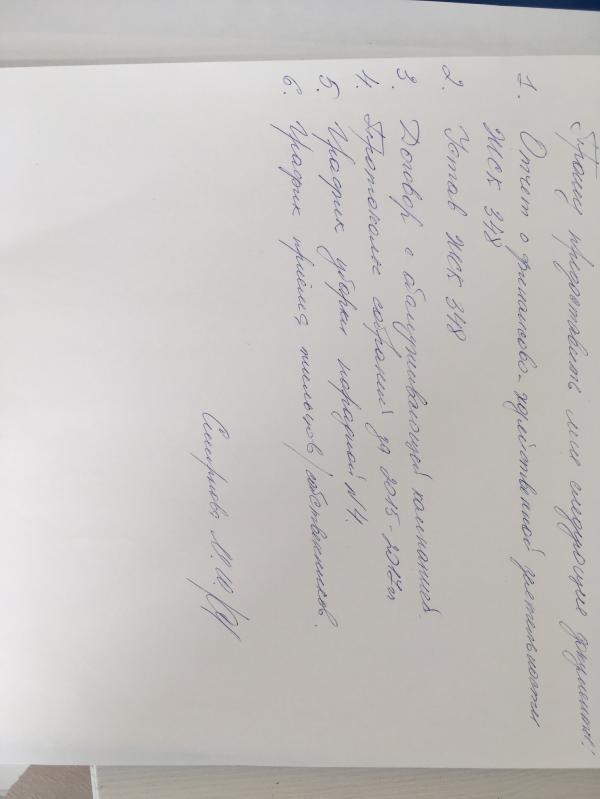 Прошу предоставить мне следующие документы:
1. Отчет о финансово-хозяйственной деятельности
ЖСК 348
2. Устав ЖСК 348
3. Договор с обслуживающей компанией.
4. Протоколы собраний за 2015-2017гг
5. График уборки парадной N4.
6. График приёма жильцов/собственников.
Смирнова М.Ю.